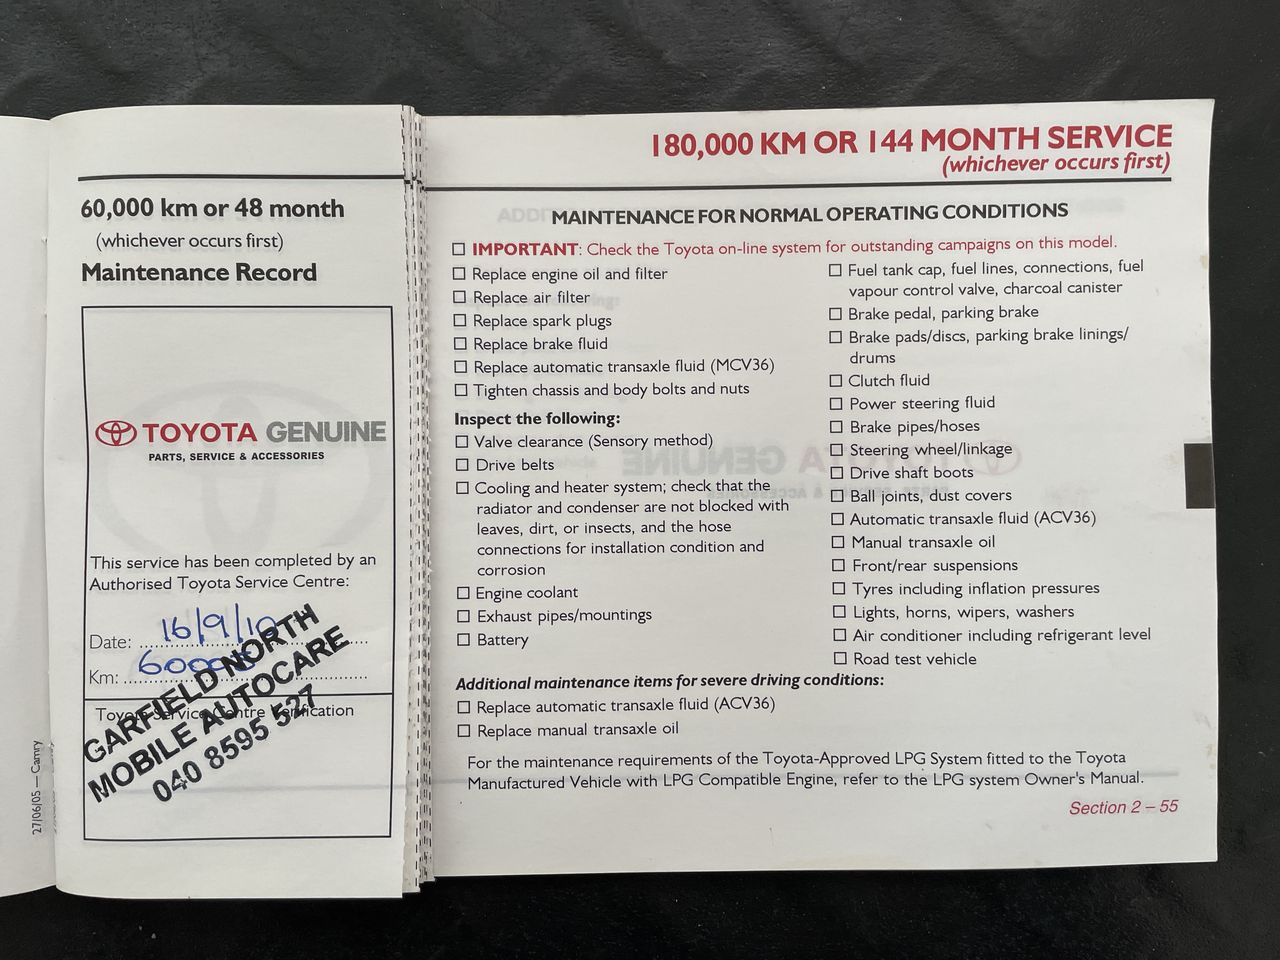 60,000 km or 48 month
(whichever occurs first)
Maintenance Record
TOYOTA GENUINE
PARTS, SERVICE & ACCESSORIES
This service has been completed by an
Authorised Toyota Service Centre:
Date: 16/9/10
Km: 60000
Toyota Service Centre Verification
GARFIELD NORTH
MOBILE AUTOCARE
040 8595 527
27/06/05—Camry
180,000 KM OR 144 MONTH SERVICE
(whichever occurs first)
MAINTENANCE FOR NORMAL OPERATING CONDITIONS
IMPORTANT: Check the Toyota on-line system for outstanding campaigns on this model.
Replace engine oil and filter
Replace air filter
Replace spark plugs
Replace brake fluid
Replace automatic transaxle fluid (MCV36)
Tighten chassis and body bolts and nuts
Inspect the following:
Valve clearance (Sensory method)
Drive belts
Cooling and heater system; check that the
radiator and condenser are not blocked with
leaves, dirt, or insects, and the hose
connections for installation condition and
corrosion
Engine coolant
Exhaust pipes/mountings
Battery
Fuel tank cap, fuel lines, connections, fuel
vapour control valve, charcoal canister
Brake pedal, parking brake
Brake pads/discs, parking brake linings/
drums
Clutch fluid
Power steering fluid
Brake pipes/hoses
Steering wheel/linkage
Drive shaft boots
Ball joints, dust covers
Automatic transaxle fluid (ACV36)
Manual transaxle oil
Front/rear suspensions
Tyres including inflation pressures
Lights, horns, wipers, washers
Air conditioner including refrigerant level
Road test vehicle
Additional maintenance items for severe driving conditions:
Replace automatic transaxle fluid (ACV36)
Replace manual transaxle oil
For the maintenance requirements of the Toyota-Approved LPG System fitted to the Toyota
Manufactured Vehicle with LPG Compatible Engine, refer to the LPG system Owner's Manual.
Section 2 – 55